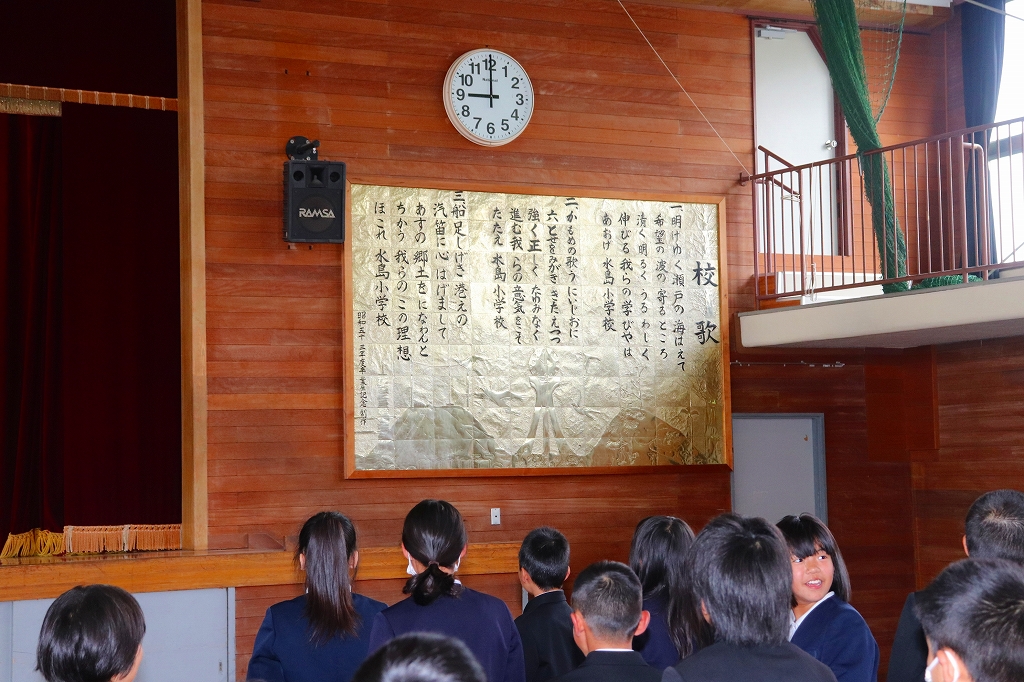 校歌
一 明けゆく瀬戸の 海はえて
希望の波の 寄るところ
清く 明るく うるわしく
伸びる 我らの 学びやは
あおげ 水島小学校
二 かもめの歌う にいしおに
六とせをみがき きたえつつ
強く 正しく たゆみなく
進む我らの意気をこそ
たたえ 水島小学校
三 船足しげき 港えの
汽笛に心 はげまして
あすの郷土を になわんと
ちかう 我らの この理想
ほこれ 水島小学校
昭和五十三年度卒業記念制作
RAMSA
12
1
2
3
4
5
6
7
8
9
10
11